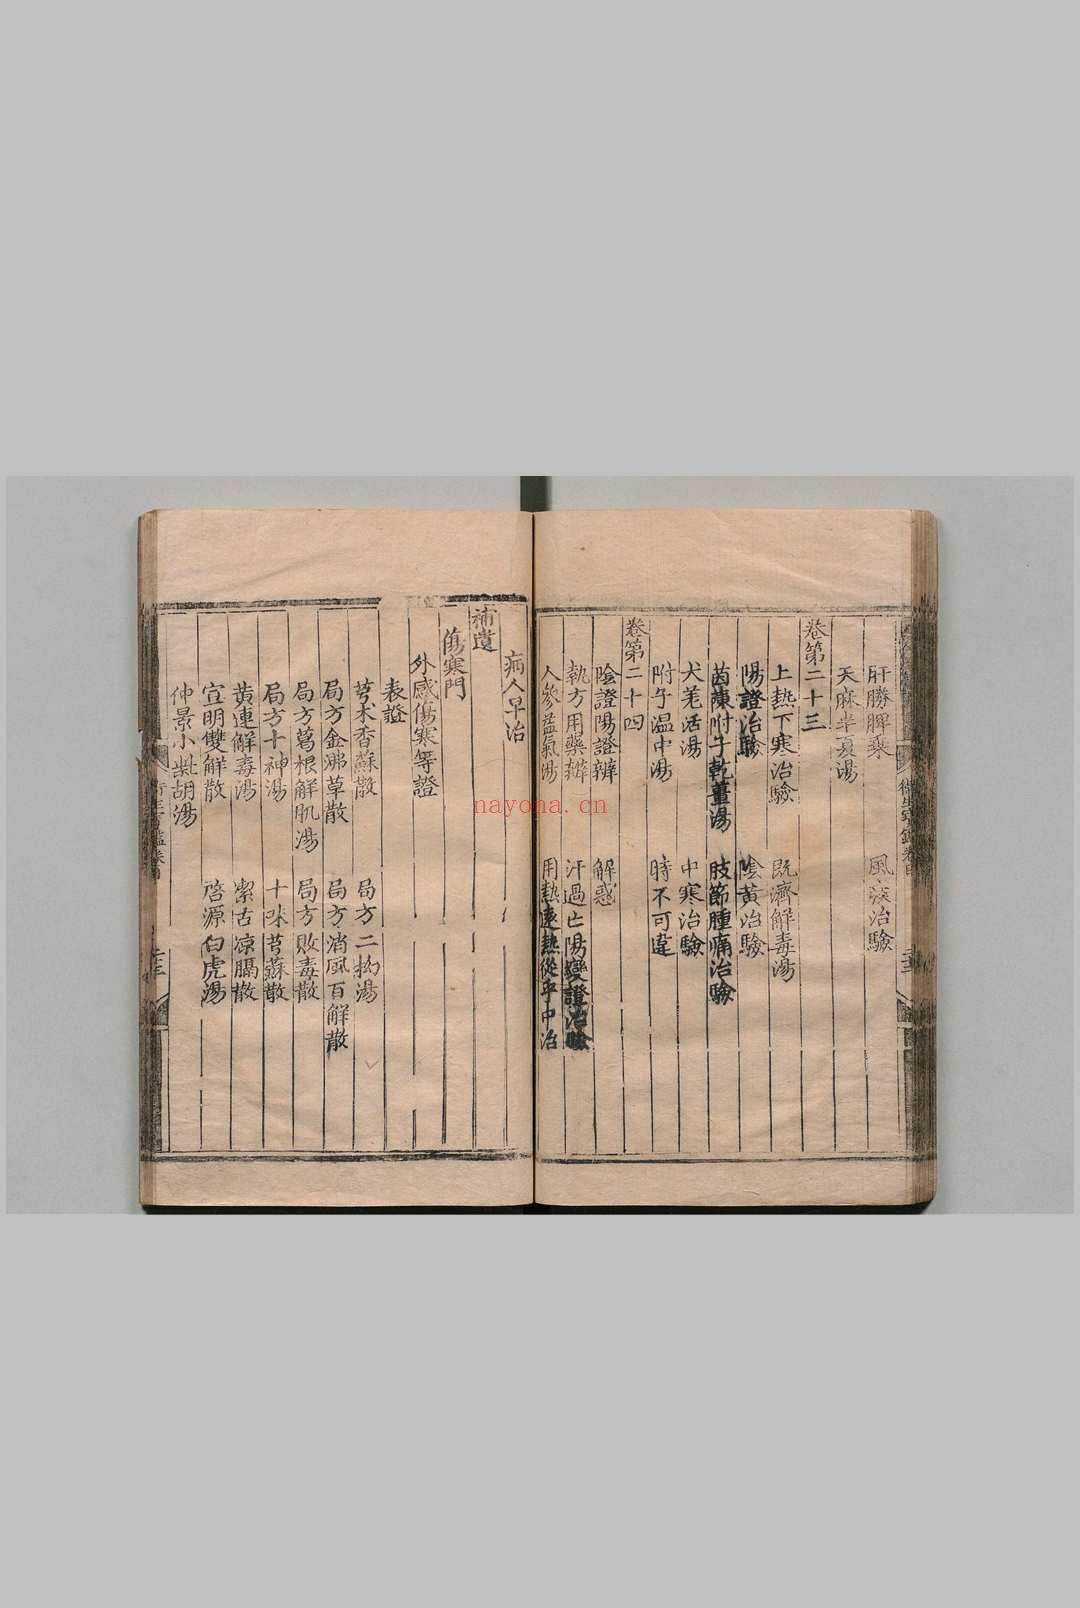 肝勝脾乘　風痰治驗
天麻半夏湯
卷第二十三
上熱下寒治驗　既濟解毒湯
陽證治驗　陰黃治驗
茵陳附子乾薑湯　肢節腫痛治驗
犬羌活湯　中寒治驗
附子温中湯　時不可違
卷第二十四
陰證陽證辨　解惑
執方用藥辨　汗過亡陽變證治驗
人參益氣湯　用熱遠熱從乎中治
病人早治
補遺
傷寒門
外感傷寒等證
表證
芎术香蘇散　局方二物湯
局方金沸草散　局方消風百解散
局方葛根解肌湯　局方敗毒散
局方十神湯　十味芎蘇散
黃連解毒湯　潔古凉膈散
宣明雙解散　啓源白虎湯
仲景小柴胡湯
nayona.cn